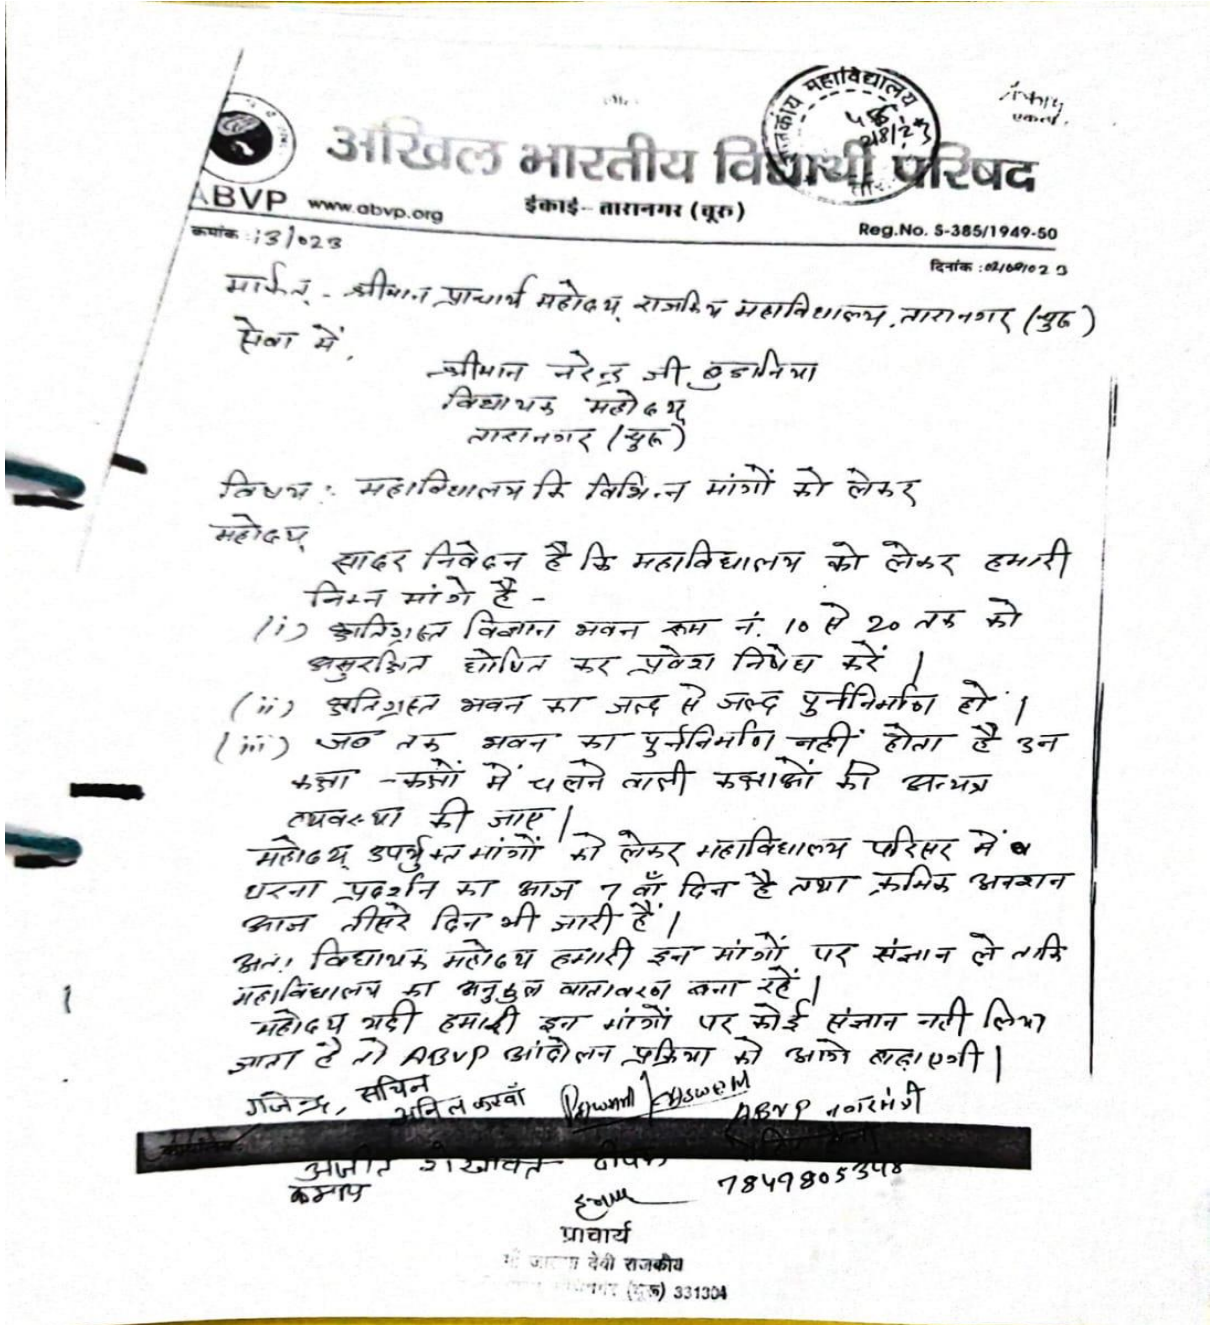 राजकीय महाविद्यालय
456
2/8/23
अखिल भारतीय विद्यार्थी परिषद
ABVP www.abvp.org
ईकाई- तारानगर (चूरू)
Reg.No. S-385/1949-50
क्रमांक : 13/023
दिनांक : 02/08/023
मार्फत - श्रीमान प्राचार्य महोदय, राजकिय महाविद्यालय, तारानगर (चुरू)
सेवा में,
श्रीमान नरेन्द्र जी बुडानिया
विधायक महोदय
तारानगर (चुरू)
विषय : महाविद्यालय कि विभिन्न मांगों को लेकर
महोदय,
सादर निवेदन है कि महाविद्यालय को लेकर हमारी
निम्न मांगे है -
(i) क्षतिग्रस्त विज्ञान भवन रूम नं. 10 से 20 तक को
असुरक्षित घोषित कर प्रवेश निषेध करें |
(ii) क्षतिग्रस्त भवन का जल्द से जल्द पुर्ननिर्माण हो |
(iii) जब तक भवन का पुर्ननिर्माण नहीं होता है उन
कक्षा - कक्षों में चलने वाली कक्षाओं की अन्यत्र
व्यवस्था की जाए |
महोदय उपर्युक्त मांगों को लेकर महाविद्यालय परिसर में
धरना प्रदर्शन का आज 7 वाँ दिन है तथा क्रमिक अनशन
आज तीसरे दिन भी जारी हैं |
अतः विधायक महोदय हमारी इन मांगों पर संज्ञान ले ताकि
महाविद्यालय का अनुकुल वातावरण बना रहें |
महोदय यदी हमारी इन मांगों पर कोई संज्ञान नही लिया
जाता है तो ABVP आंदोलन प्रक्रिया को आगे बढ़ाएगी |
गजेन्द्र, सचिन
अनिल कस्वाँ
ABVP नगरमंत्री
अजीत शेखावत दीपक
7849805348
प्राचार्य
देवी राजकीय
(चूरू) 331304